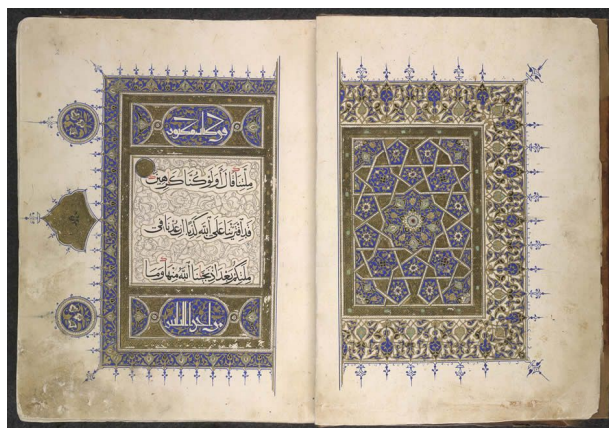 في كتاب مكنون
ملتنا قال أولو كنا كرهين
قد افترينا على الله كذبا إن عدنا في
ملتكم بعد إذ نجينا الله منها وما